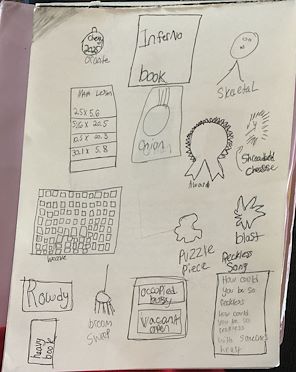 Inferno
book
Skeletal
Math Lesson
2.5 x 5.6
Onion
Award
Shredded
cheese
weave
Puzzle
Piece
blast
Reckless
Song
How could
you be so
reckless
How could
you be so
reckless
with someone's
heart
Rowdy
broom
sweep
occupied
busy
vacant
open
heavy
book